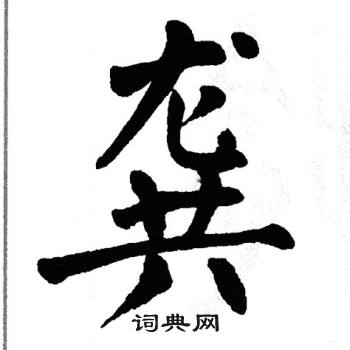 龚
词典网